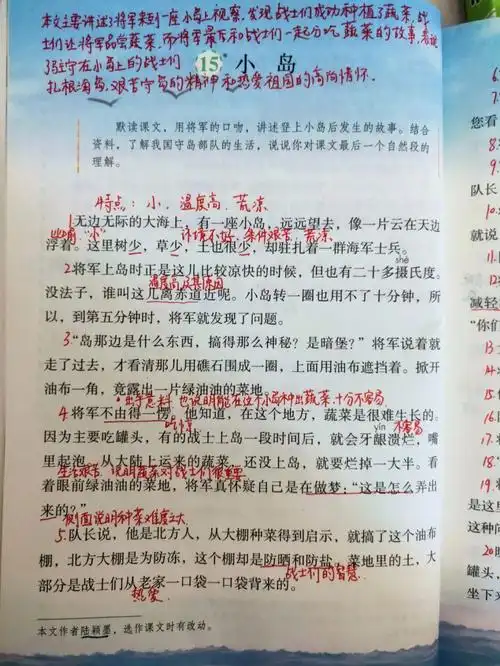 本文主要讲述了将军来到一座小岛上视察,发现战士们成功种植了蔬菜,战
士们让将军品尝蔬菜,而将军最后和战士们一起分吃蔬菜的故事,表现
了驻守在小岛上的战士们
扎根海岛、艰苦守岛的精神和热爱祖国的高尚情怀.
15* 小岛
默读课文,用将军的口吻,讲述登上小岛后发生的故事。结合
资料,了解我国守岛部队的生活,说说你对课文最后一个自然段的
理解。
特点:小、温度高、荒凉
1.无边无际的大海上,有一座小岛,远远望去,像一片云在天边
出岛"小" 环境不好,条件艰苦,荒凉
浮着。这里树少,草少,土也很少,却驻扎着一群海军士兵。
shè
2将军上岛时正是这儿比较凉快的时候,但也有二十多摄氏度。
温度高及其原因
没法子,谁叫这儿离赤道近呢。小岛转一圈也用不了十分钟,所
以,到第五分钟时,将军就发现了问题。
3."岛那边是什么东西,搞得那么神秘?是暗堡?"将军说着就
走了过去,才看清那儿用礁石围成一圈,上面用油布遮挡着。掀开
油布一角,竟露出一片绿油油的菜地。
出乎意料 也说明能在这个小岛种出蔬菜,十分不容易
4.将军不由得一愣。他知道,在这个地方,蔬菜是很难生长的。
吃惊 yín 不容易
因为主要吃罐头,有的战士上岛一段时间后,就会牙龈溃烂,嘴
里起泡。从大陆上运来的蔬菜,还没上岛,就要烂掉一大半。看
生活艰苦 说明蔬菜对战士们很重要
着眼前绿油油的菜地,将军真怀疑自己是在做梦:"这是怎么弄出
来的?"
侧面说明种菜难度之大
5.队长说,他是北方人,从大棚种菜得到启示,就搞了这个油布
棚,北方大棚是为防冻,这个棚却是防晒和防盐。菜地里的土,大
战士们的智慧
部分是战士们从老家一口袋一口袋背来的。
热爱
本文作者陆颖墨,选作课文时有改动。
您看
队长
就说
减轻
"你们
将
这是
罐头,
坐下来